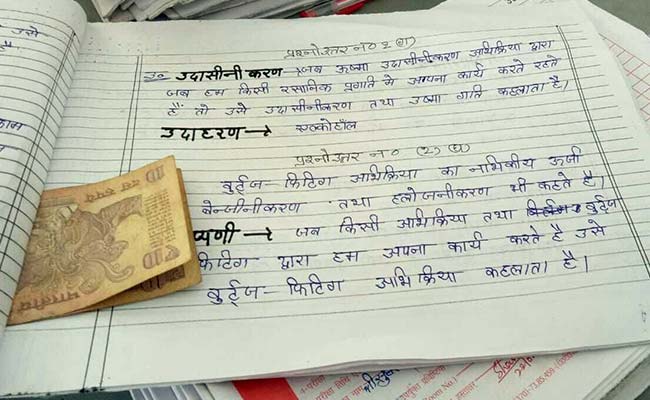 प्रश्नोत्तर न० 2 (ग)
उ० उदासीनीकरण → जब ऊष्मा उदासीनीकरण अभिक्रिया द्वारा
जब हम किसी रसानिक प्रगति मे अपना कार्य करते रहते
हैं तो उसे उदासीनीकरण तथा उष्मा गति कहलाता है।
उदाहरण → एल्कोहॉल
प्रश्नोत्तर न० (2) (घ)
वुर्ट्ज - फिटिग अभिक्रिया का नाभिकीय ऊर्जा
बेन्जीनीकरण तथा हलोजनीकरण भी कहते है।
प्पणी → जब किसी अभिक्रिया तथा वुर्ट्ज
फिटिग द्वारा हम अपना कार्य करते है उसे
वुर्ट्ज - फिटिग अभिक्रिया कहलाता है।
उसे
है।
10
दस रुपये
10
भारतीय